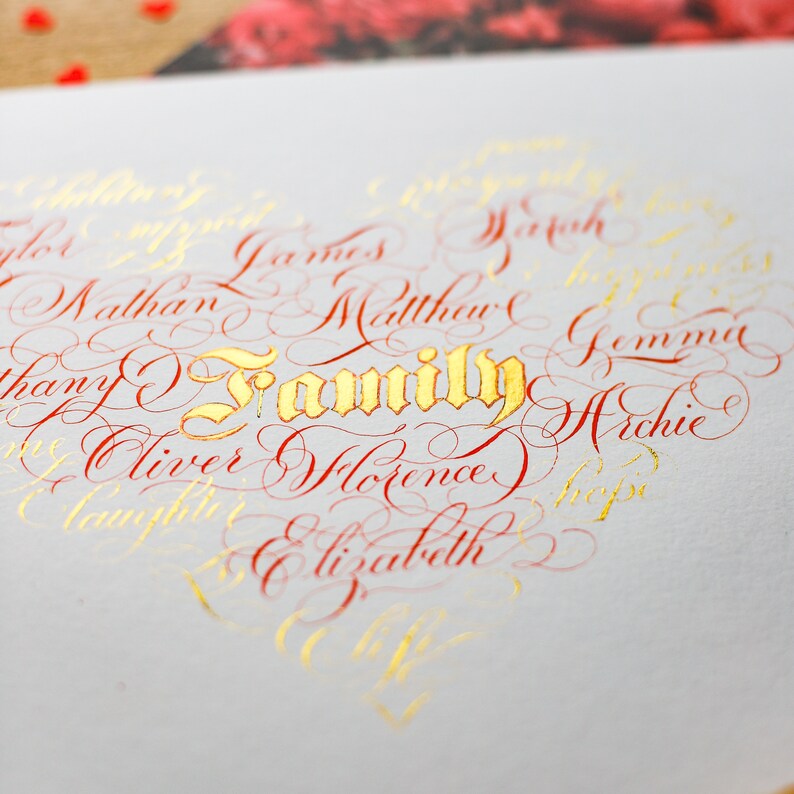 children
support prosperity love
ylor James Sarah
happiness
Nathan Matthew Gemma
thany Family Archie
me Oliver Florence hope
laughter Elizabeth
life